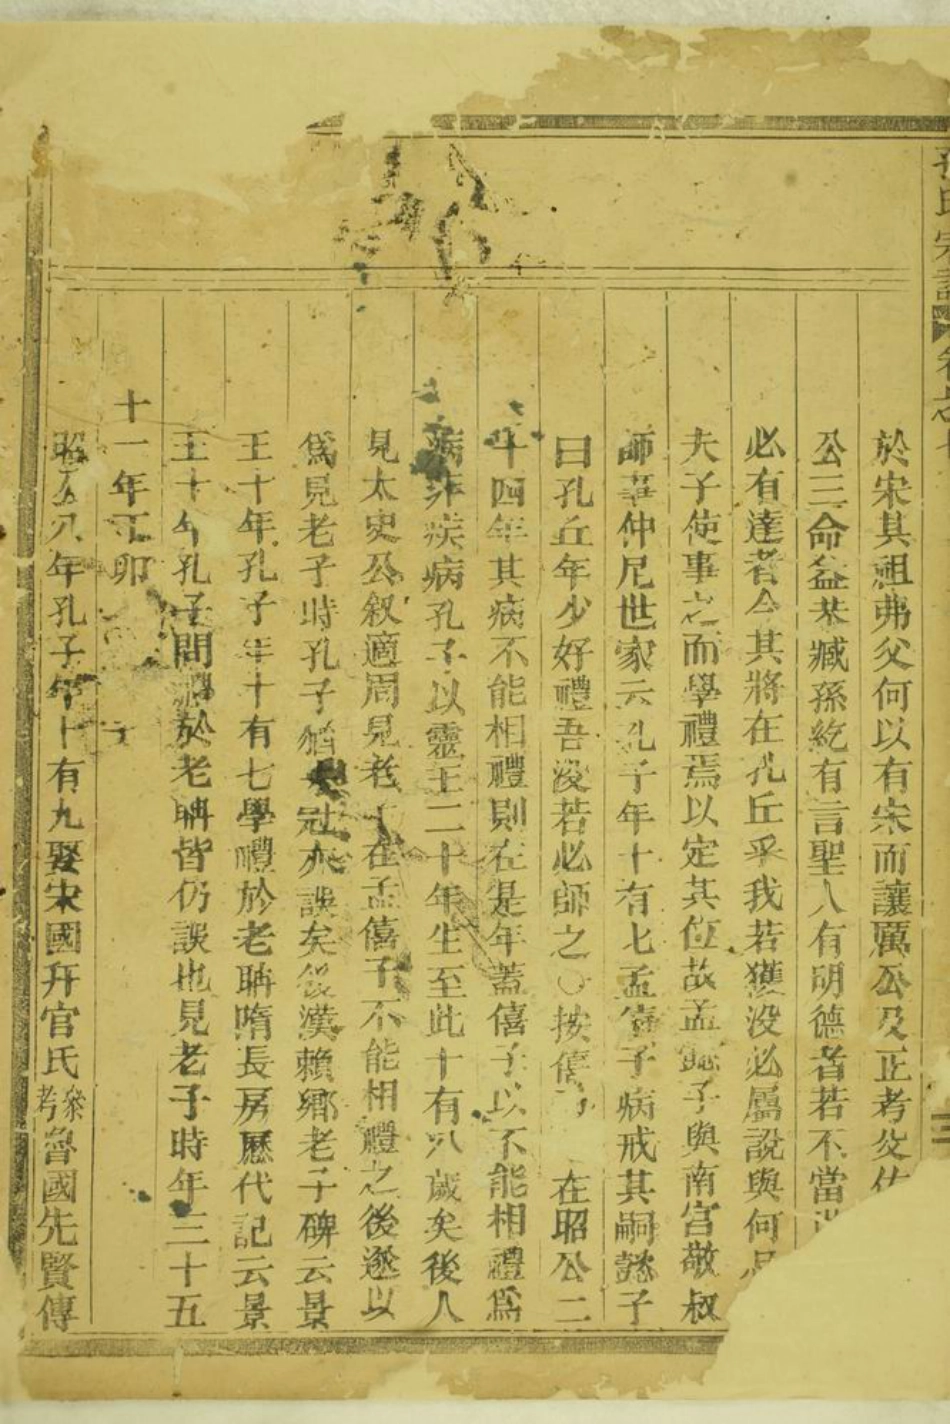 孔氏宗譜 卷
於宋其祖弗父何以有宋而讓厲公及正考父佐
公三命益恭臧孫紇有言聖人有明德者若不當
必有達者今其將在孔丘乎我若獲没必屬說與何忌
夫子使事之而學禮焉以定其位故孟懿子與南宮敬叔
師事仲尼世家云孔子年十有七孟釐子病戒其嗣懿子
曰孔丘年少好禮吾没若必師之〇按僖 在昭公二
十四年其病不能相禮則在是年蓋僖子以不能相禮爲
病非疾病孔子以靈王二十年生至此十有八歲矣後人
見太史公叙適周見老子在孟僖子不能相禮之後遂以
爲見老子時孔子猶 冠亦誤矣後漢賴鄉老子碑云景
王十年孔子年十有七學禮於老聃隋長房歷代記云景
王十年孔子問禮於老聃皆仍誤也見老子時年三十五
十一年丁卯
昭公八年孔子年十有九娶宋國幵官氏參考魯國先賢傳